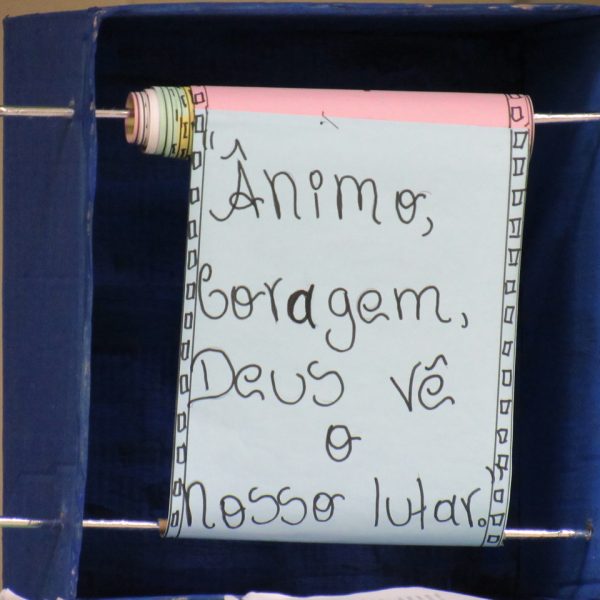 "Ânimo,
Coragem,
Deus vê
o
nosso lutar."